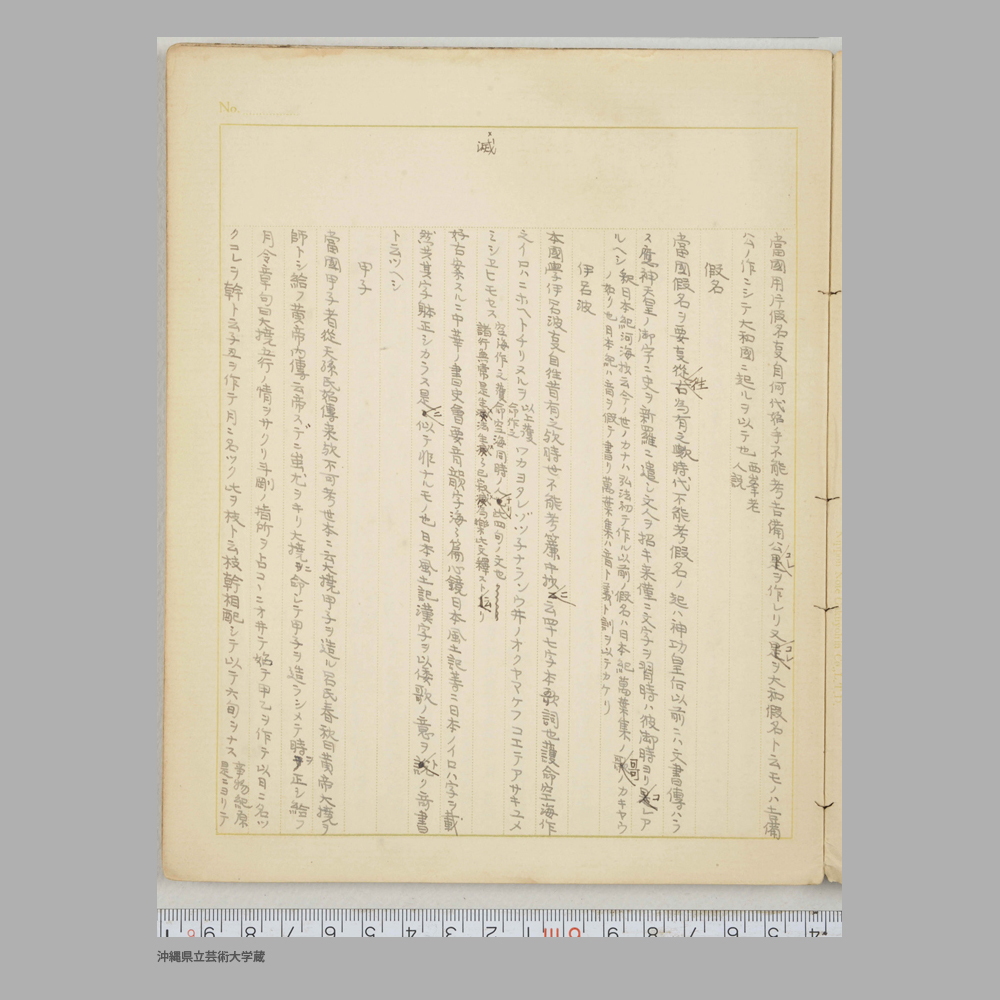 當國用片假名叓自何代始乎不能考吉備公コレヲ作レリ又コレヲ大和假名ト云モノハ吉備
公ノ作ニシテ大和國ニ起ルヲ以テ也
人説
假名
當國假名ヲ要叓從往古当有之歟時代不能考假名ノ起ハ神功皇后以前ニハ文書傳ハラ
ス應神天皇ノ御宇ニ史ヲ新羅ニ遣シ文人ヲ招キ来僅ニ文字ヲ習時ハ彼御時ヨリコレア
ルヘシ釈日本紀河海抄云今ノ世ノカナハ弘法初テ作ル以前ノ假名ハ日本紀萬葉集ノ哥ノカキヤウ
ノ如リ也日本紀ハ音ヲ假テ書リ萬葉集ハ音ト義ト訓ヲ以テカケリ
伊呂波
本國學伊呂波叓自往昔有之歟時世不能考簾中抄ニ云四十七字本歌詞也護命空海作
之イロハニホヘトチリヌルヲ以上護命作之ワカヨタレソツネナラムウ井ノオクヤマケフコエテアサキユメ
ミシヱヒモセス空海作之護命空海同時ノ
諸行無常是生滅法生滅々已寂滅為樂此文釋スト云リ
好古案スルニ中華ノ書史會要音韻字海々篇心鏡日本風土記等ニ日本ノイロハ字ヲ載
然共其字躰正シカラス是ニ似テ作ナルモノ也日本風土記漢字ヲ以倭歌ノ意ヲトク奇書
ト云ツヘシ
甲子
當國甲子者從天孫氏始傳来歟不可考世本ニ云大撓甲子ヲ造ル呂氏春秋曰黄帝大撓ヲ
師トシ給フ黄帝内傳云帝ステニ蚩尤ヲキリ大撓ニ命シテ甲子ヲ造ラシメテ時ヲ正シ給フ
月令章句曰大撓五行ノ情ヲサクリ斗剛ノ指所ヲ占コヽニオ井テ始テ甲乙ヲ作テ以日ニ名ツ
クコレヲ幹ト云子丑ヲ作テ月ニ名ツク此ヲ枝ト云枝幹相配シテ以テ六旬ヲナス事物紀原
是ニヨリテ
滅
No.
沖縄県立芸術大学蔵